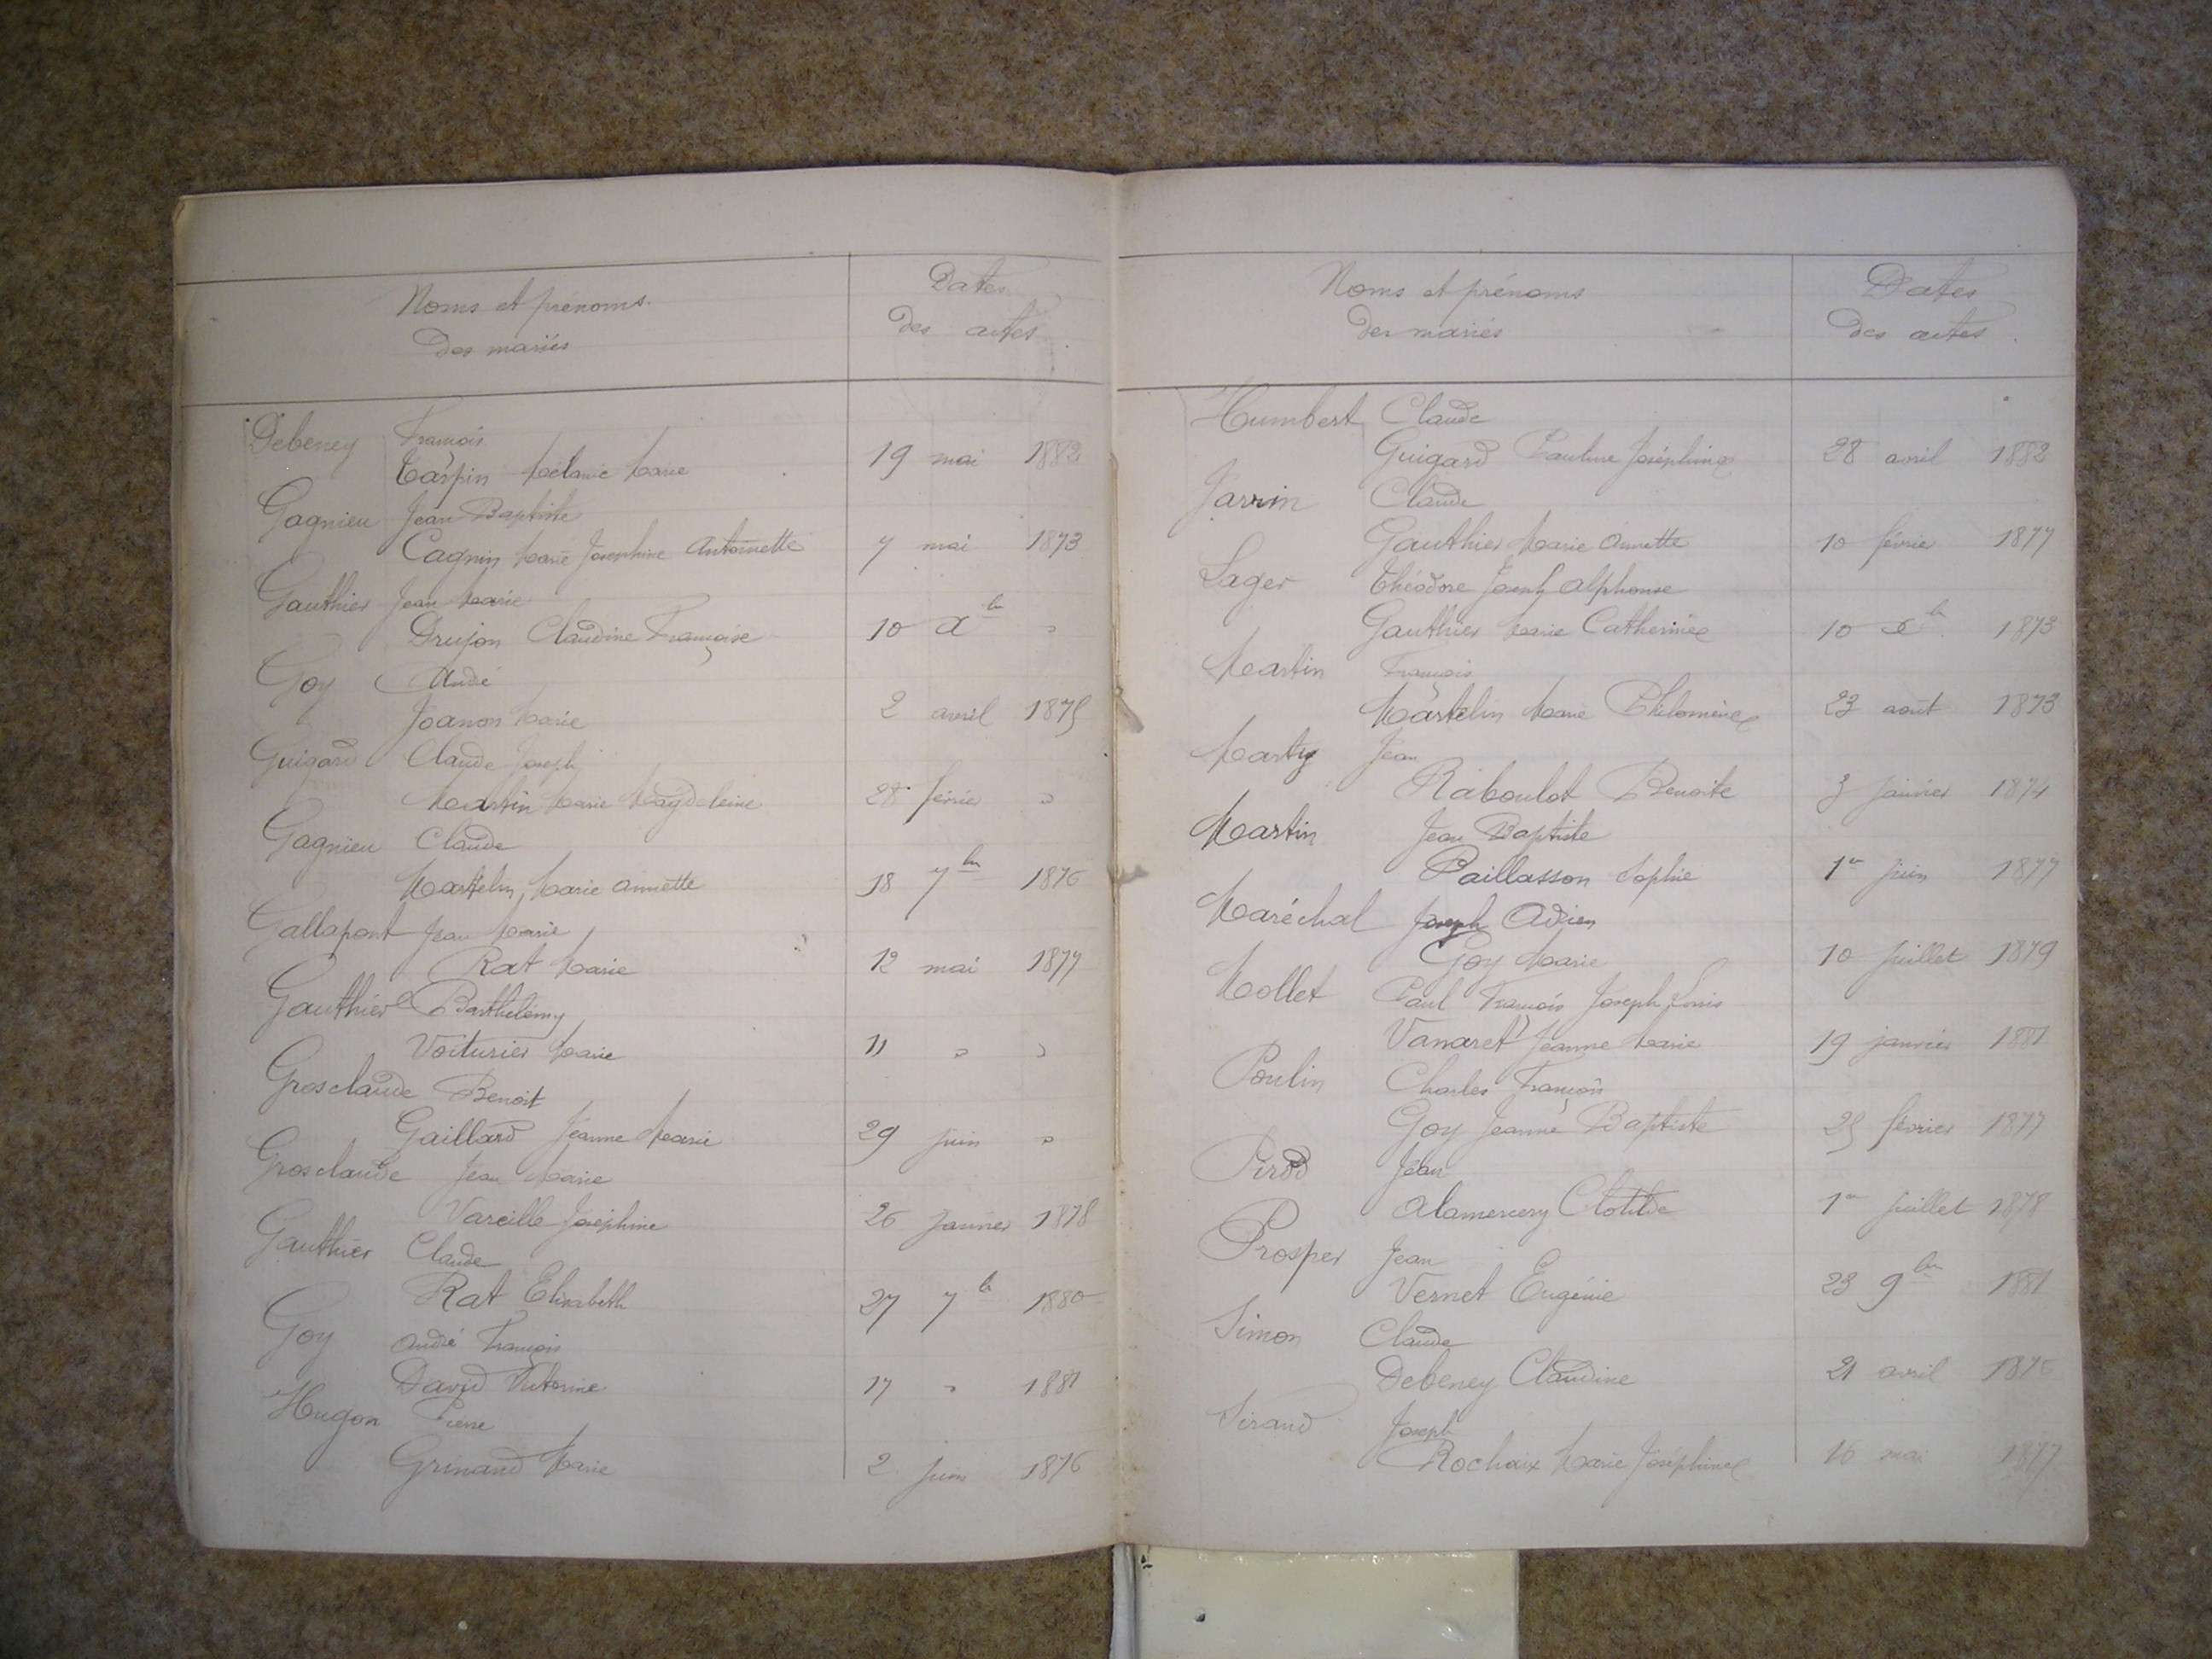 Noms et prénoms
des mariés
Dates
des actes
Debeney François
Tarpin Mélanie Marie 19 mai 1882
Gagnieu Jean Baptiste
Cagnin Marie Josephine Antoinette 7 mai 1873
Gauthier Jean Marie
Drujon Claudine Françoise 10 Xbre "
Goy André
Joanon Marie 2 avril 1875
Guigard Claude Joseph
Martin Marie Magdeleine 28 février "
Gagnieu Claude
Martelin Marie Annette 18 7bre 1876
Gallapont Jean Marie
Rat Marie 12 mai 1877
Gauthier Barthélemy
Voiturier Marie 11 " "
Grosclaude Benoit
Gaillard Jeanne Marie 29 juin "
Grosclaude Jean Marie
Vareille Joséphine 26 janvier 1878
Gauthier Claude
Rat Elisabeth 27 7bre 1880
Goy André François
David Victorine 17 " 1881
Hugon Pierre
Grinand Marie 2 juin 1876
Noms et prénoms
des mariés
Dates
des actes
Humbert Claude
Guigard Pauline Joséphine 28 avril 1882
Jarrin Claude
Gauthier Marie Annette 10 février 1877
Lager Théodore Joseph Alphonse
Gauthier Marie Catherine 10 Xbre 1873
Martin François
Martelin Marie Philomène 23 août 1873
Marty Jean
Raboulot Benoite 3 janvier 1874
Martin Jean Baptiste
Paillasson Sophie 1er juin 1877
Maréchal Joseph Adrien
Goy Marie 10 juillet 1879
Mollet Paul François Joseph Louis
Vanaret Jeanne Marie 19 janvier 1881
Poulin Charles François
Goy Jeanne Baptiste 25 février 1877
Pirod Jean
Alamercery Clotilde 1er juillet 1878
Prosper Jean
Vernet Eugénie 23 9bre 1881
Simon Claude
Debeney Claudine 21 avril
Sirand Joseph
Rochaix Marie Joséphine 16 mai 1877